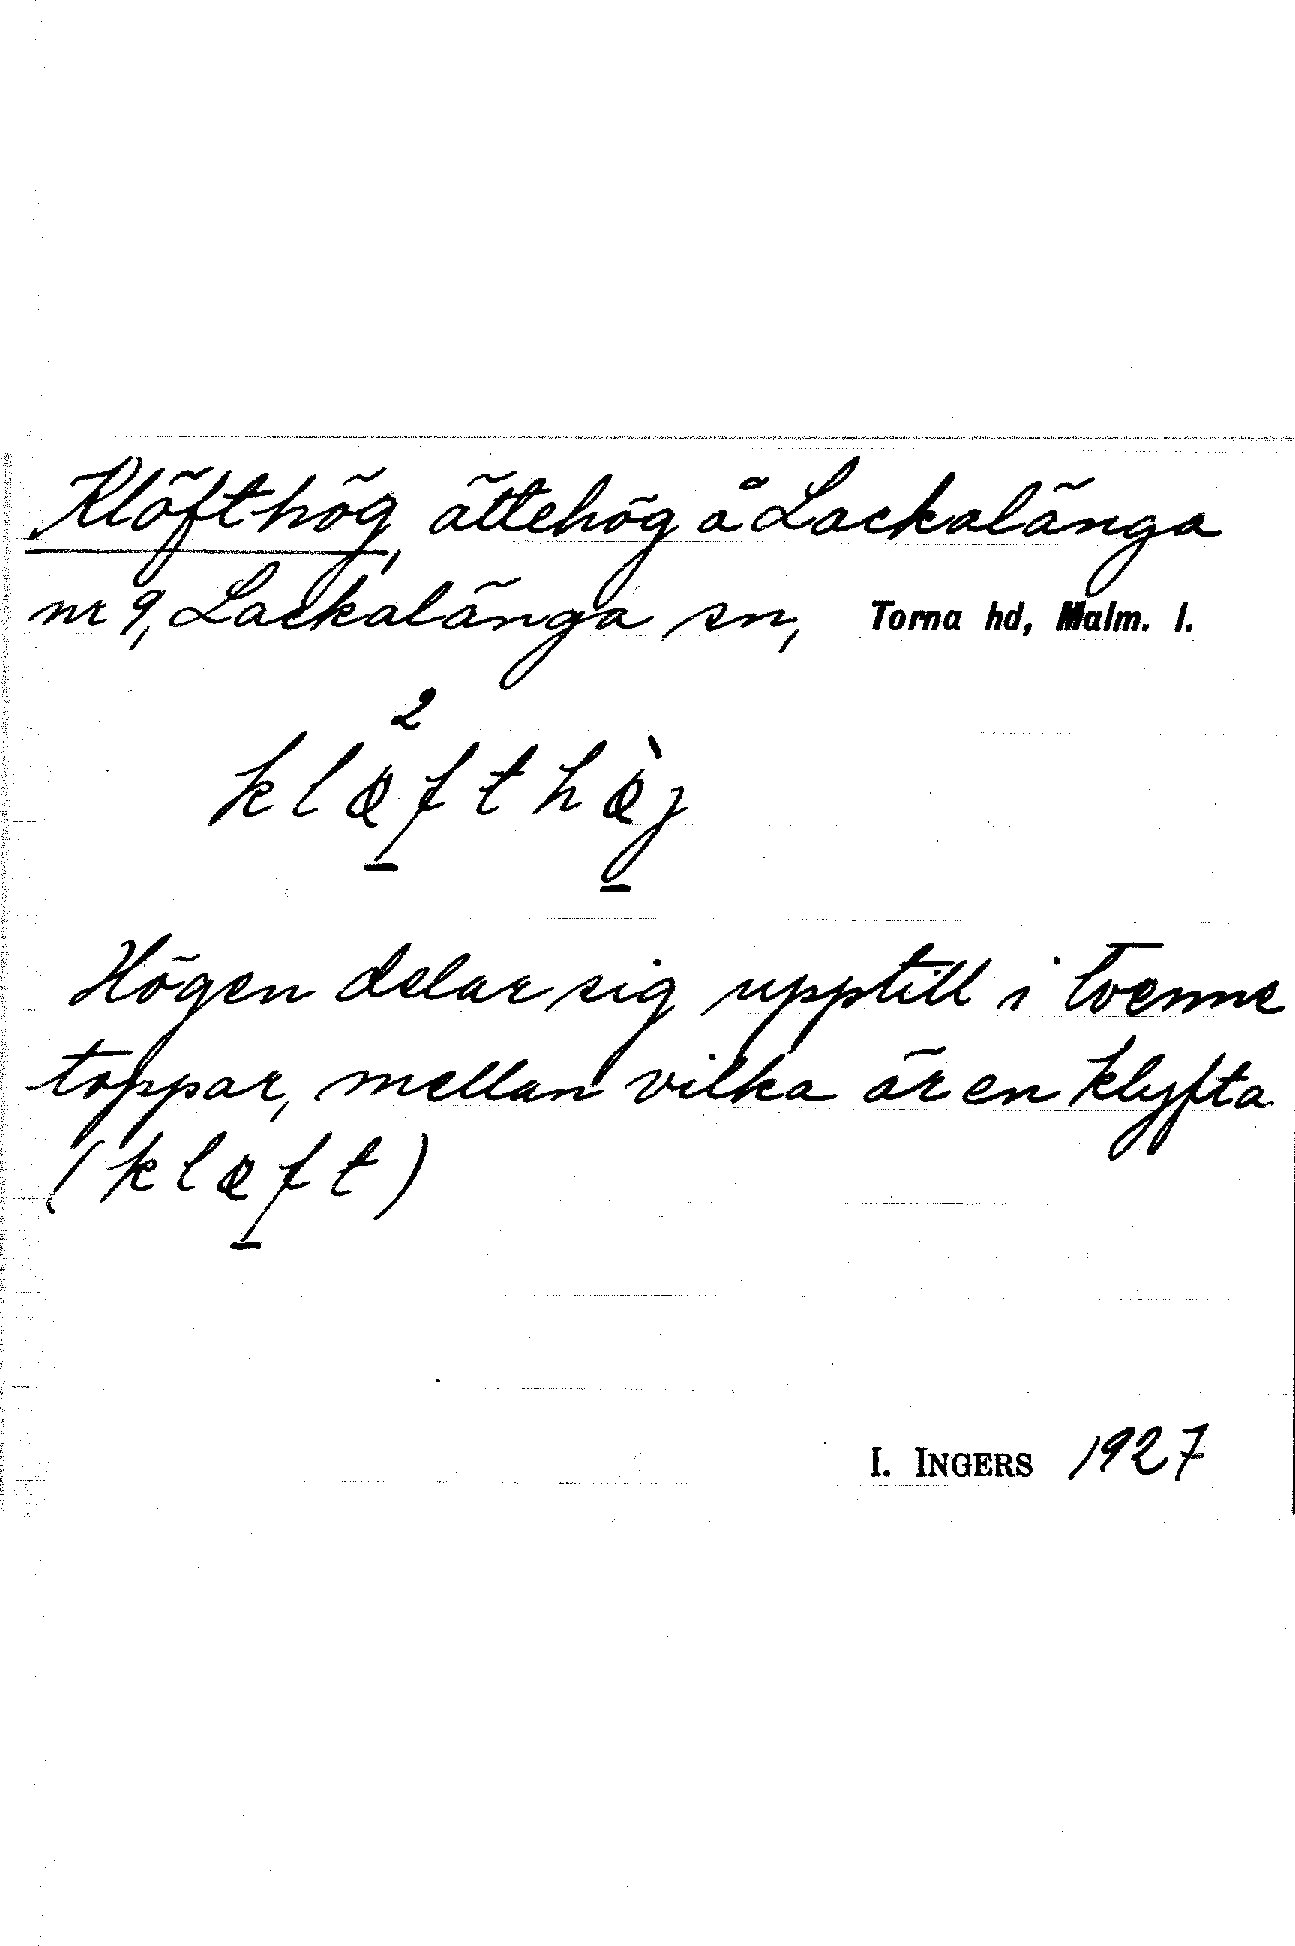 Klöfthög, ättehög å Lackalänga
nr 9, Lackalänga sn, Torna hd, Malm. l.
2
klœfthœ̀j
Högen delar sig upptill i tvenne
toppar, mellan vilka är en klyfta
(klœft)
I. INGERS 1927